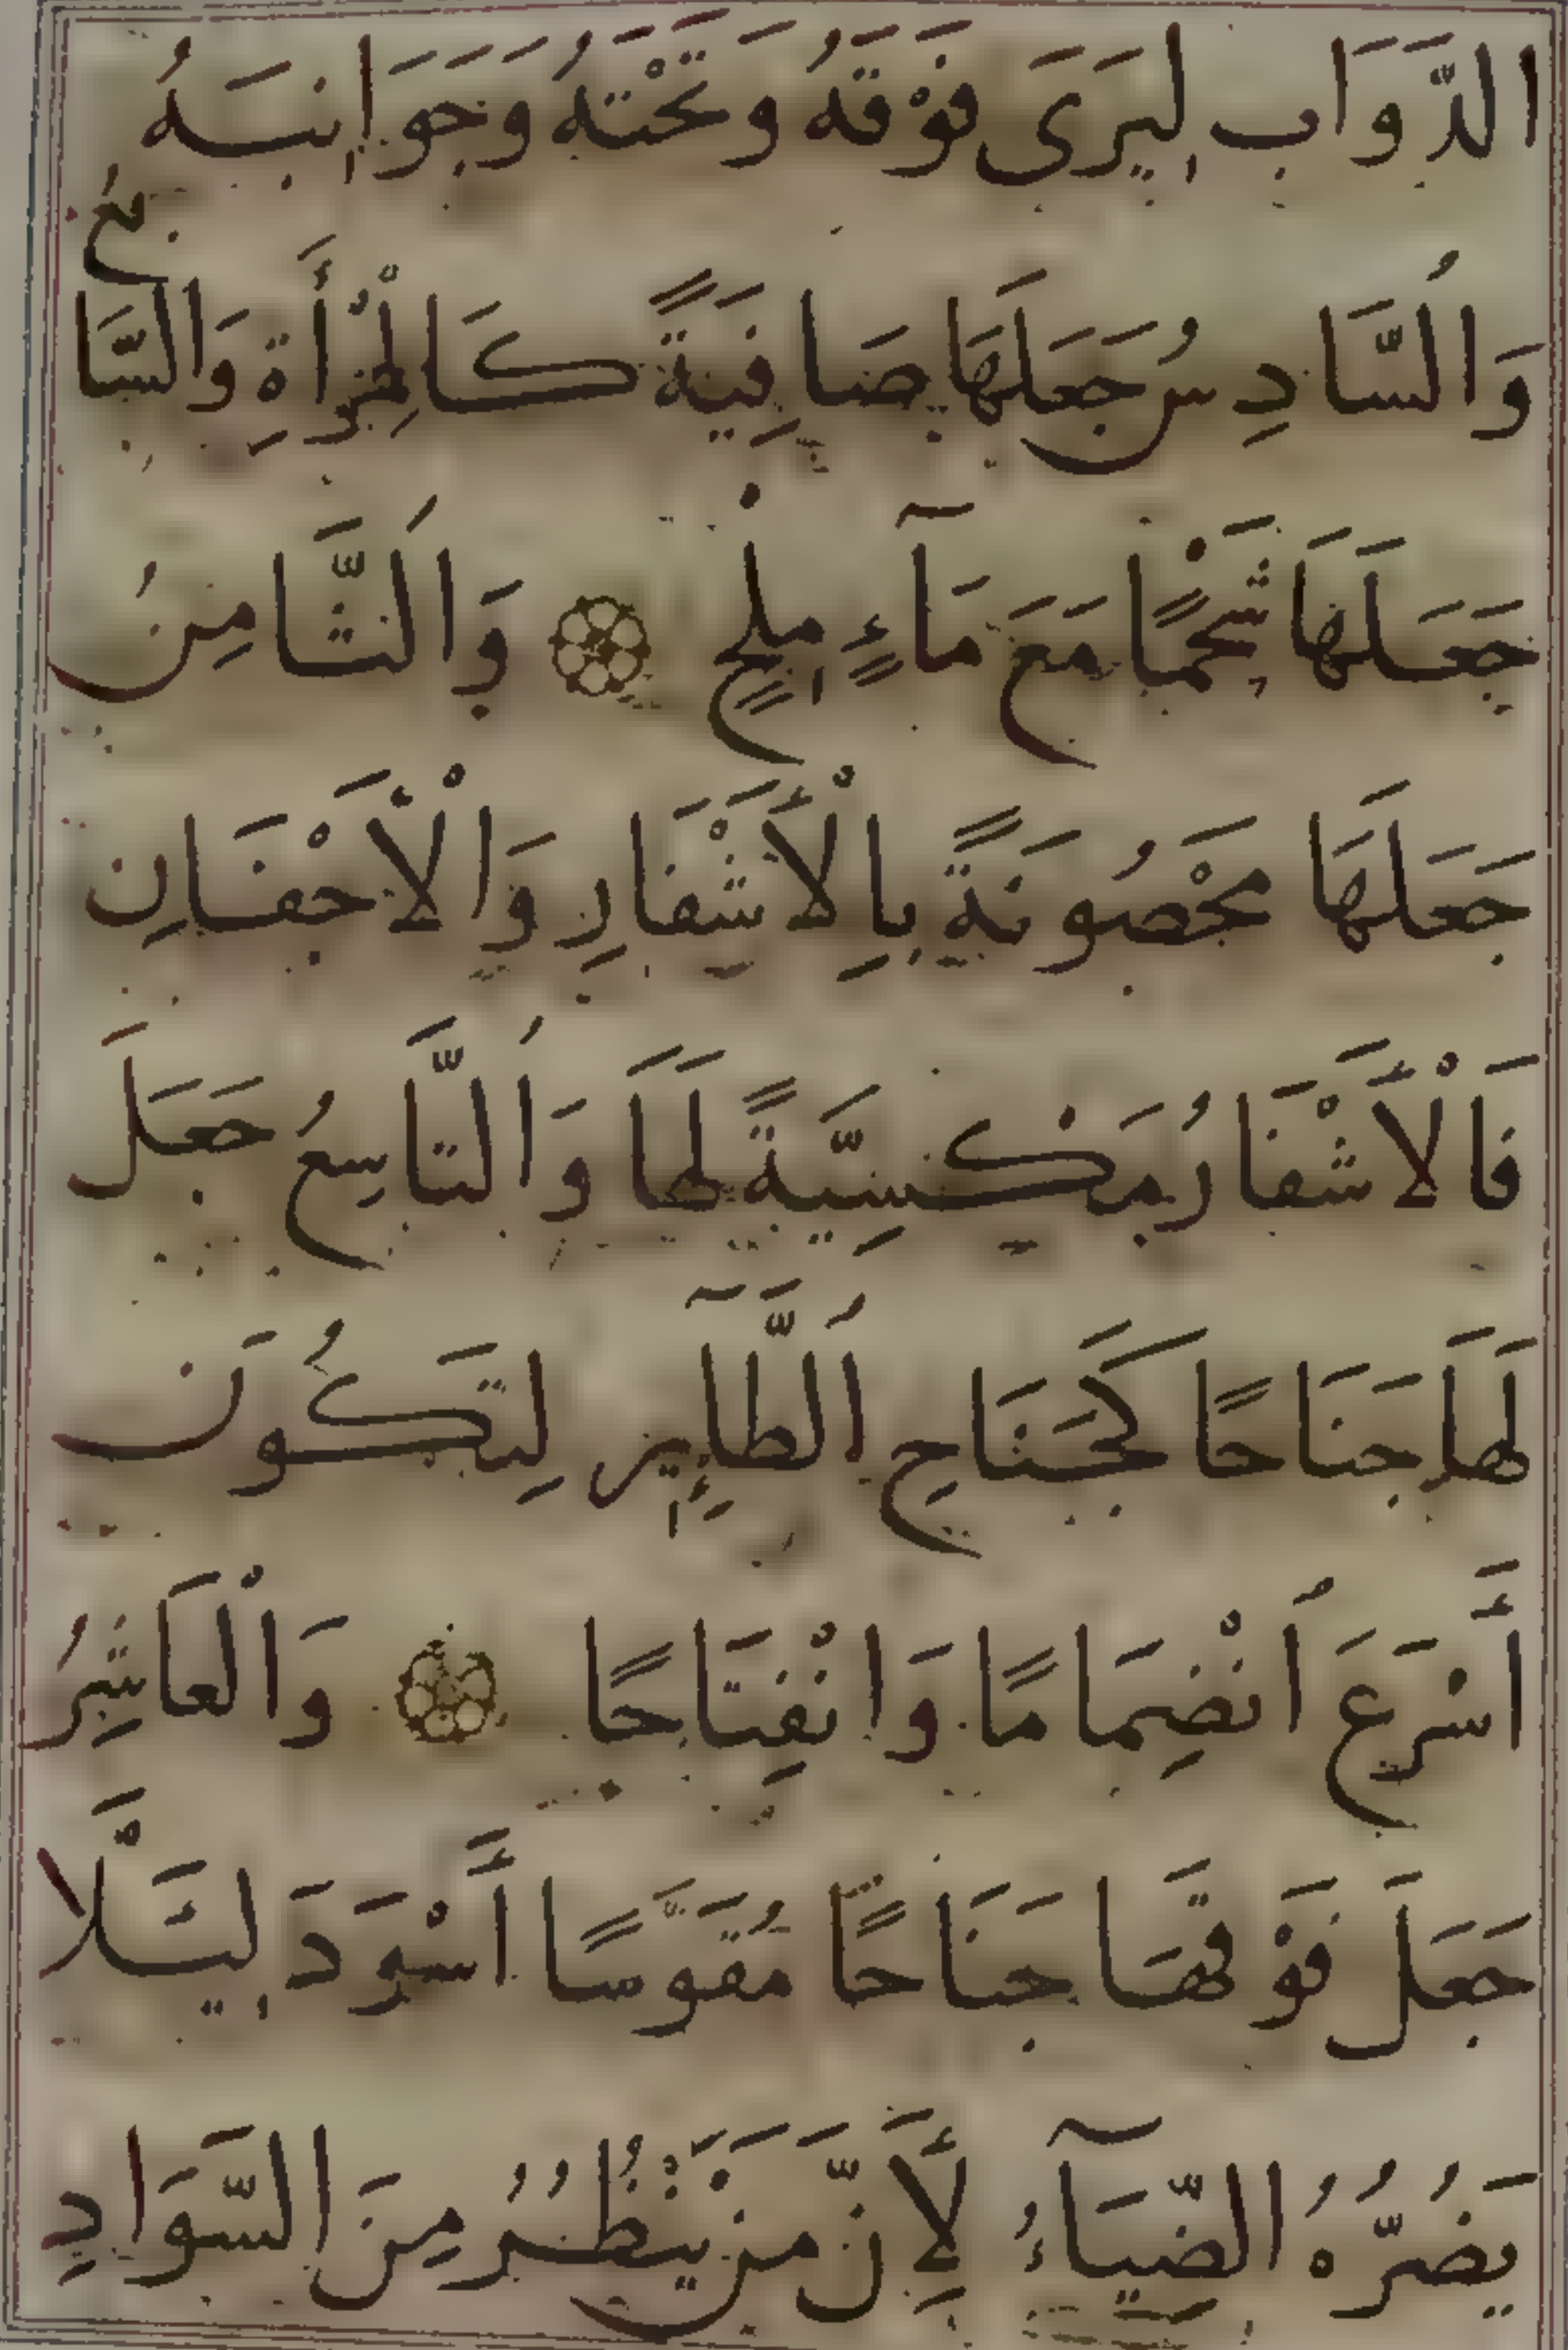 الدَّوَاب لِيَرَى فَوْقَهُ وَتَحْتَهُ وَجَوَانِبَهُ
وَالسَّادِسُ جَعَلَهَا صَافِيَةً كَالْمِرْأَةِ وَالسَّابِعُ
جَعَلَهَا شَحْمًا مَعَ مَآءٍ مِلْحٍ وَالثَّامِنُ
جَعَلَهَا مَحْصُونَةً بِالْأَشْفَارِ وَالْأَجْفَانِ
فَالْأَشْفَارُ مَكْسِيَّةً لَهَا وَالتَّاسِعُ جَعَلَ
لَهَا جَنَاحًا كَجَنَاحِ الطَّآئِرِ لِتَكُونَ
أَسْرَعَ انْضِمَامًا وَانْفِتَاحًا وَالْعَاشِرُ
جَعَلَ فَوْقَهَا جَنَاحًا مُقَوَّسًا أَسْوَدَ لِئَلَّا
يَضُرُّهُ الضِّيَآءُ لِأَنَّ مَنْ يَنْظُرُ مِنَ السَّوَادِ